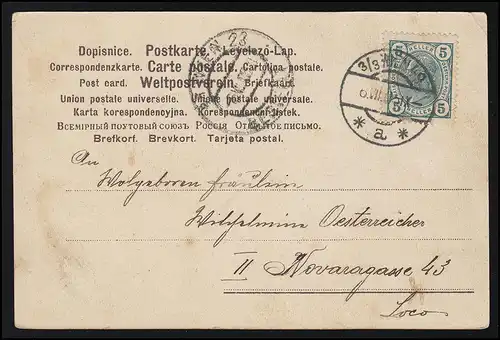 Dopisnice. Postkarte. Levelező-Lap.
Correspondenzkarte. Carte postale. Cartolina postale.
Post card. Weltpostverein. Briefkaart.
Union postale universelle. Unión postale universale.
Karta korespondencyjna. Korespondenční lístek.
Всемірный почтовый союзъ Россія Открытое письмо.
Brefkort. Brevkort. Tarjeta postal.
WIEN 23
3/3 WIEN
* a *
5 HELLER 5
5 5
An
Wolgeboren Fräulein
Wilhelmine Oesterreicher
II Novaragasse 43
Loco